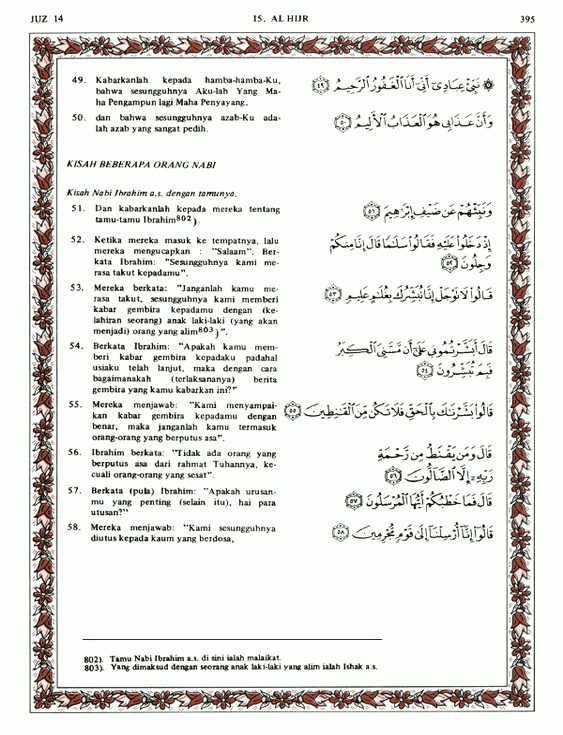 JUZ 14
15. AL HIJR
395
49. Kabarkanlah kepada hamba-hamba-Ku,
bahwa sesungguhnya Aku-lah Yang Ma-
ha Pengampun lagi Maha Penyayang,
۞ نَبِّئْ عِبَادِىٓ أَنِّىٓ أَنَا ٱلْغَفُورُ ٱلرَّحِيمُ ٤٩
50. dan bahwa sesungguhnya azab-Ku ada-
lah azab yang sangat pedih.
وَأَنَّ عَذَابِى هُوَ ٱلْعَذَابُ ٱلْأَلِيمُ ٥٠
KISAH BEBERAPA ORANG NABI
Kisah Nabi Ibrahim a.s. dengan tamunya.
51. Dan kabarkanlah kepada mereka tentang
tamu-tamu Ibrahim802).
وَنَبِّئْهُمْ عَن ضَيْفِ إِبْرَٰهِيمَ ٥١
52. Ketika mereka masuk ke tempatnya, lalu
mereka mengucapkan : "Salaam". Ber-
kata Ibrahim: "Sesungguhnya kami me-
rasa takut kepadamu".
إِذْ دَخَلُوا۟ عَلَيْهِ فَقَالُوا۟ سَلَٰمًا قَالَ إِنَّا مِنكُمْ
وَجِلُونَ ٥٢
53. Mereka berkata: "Janganlah kamu me-
rasa takut, sesungguhnya kami memberi
kabar gembira kepadamu dengan (ke-
lahiran seorang) anak laki-laki (yang akan
menjadi) orang yang alim803)".
قَالُوا۟ لَا تَوْجَلْ إِنَّا نُبَشِّرُكَ بِغُلَٰمٍ عَلِيمٍ ٥٣
54. Berkata Ibrahim: "Apakah kamu mem-
beri kabar gembira kepadaku padahal
usiaku telah lanjut, maka dengan cara
bagaimanakah (terlaksananya) berita
gembira yang kamu kabarkan ini?"
قَالَ أَبَشَّرْتُمُونِى عَلَىٰٓ أَن مَّسَّنِىَ ٱلْكِبَرُ
فَبِمَ تُبَشِّرُونَ ٥٤
55. Mereka menjawab: "Kami menyampai-
kan kabar gembira kepadamu dengan
benar, maka janganlah kamu termasuk
orang-orang yang berputus asa".
قَالُوا۟ بَشَّرْنَٰكَ بِٱلْحَقِّ فَلَا تَكُن مِّنَ ٱلْقَٰنِطِينَ ٥٥
56. Ibrahim berkata: "Tidak ada orang yang
berputus asa dari rahmat Tuhannya, ke-
cuali orang-orang yang sesat".
قَالَ وَمَن يَقْنَطُ مِن رَّحْمَةِ
رَبِّهِۦٓ إِلَّا ٱلضَّآلُّونَ ٥٦
57. Berkata (pula) Ibrahim: "Apakah urusan-
mu yang penting (selain itu), hai para
utusan?"
قَالَ فَمَا خَطْبُكُمْ أَيُّهَا ٱلْمُرْسَلُونَ ٥٧
58. Mereka menjawab: "Kami sesungguhnya
diutus kepada kaum yang berdosa,
قَالُوٓا۟ إِنَّآ أُرْسِلْنَآ إِلَىٰ قَوْمٍ مُّجْرِمِينَ ٥٨
802). Tamu Nabi Ibrahim a.s. di sini ialah malaikat.
803). Yang dimaksud dengan seorang anak laki-laki yang alim ialah Ishak a.s.